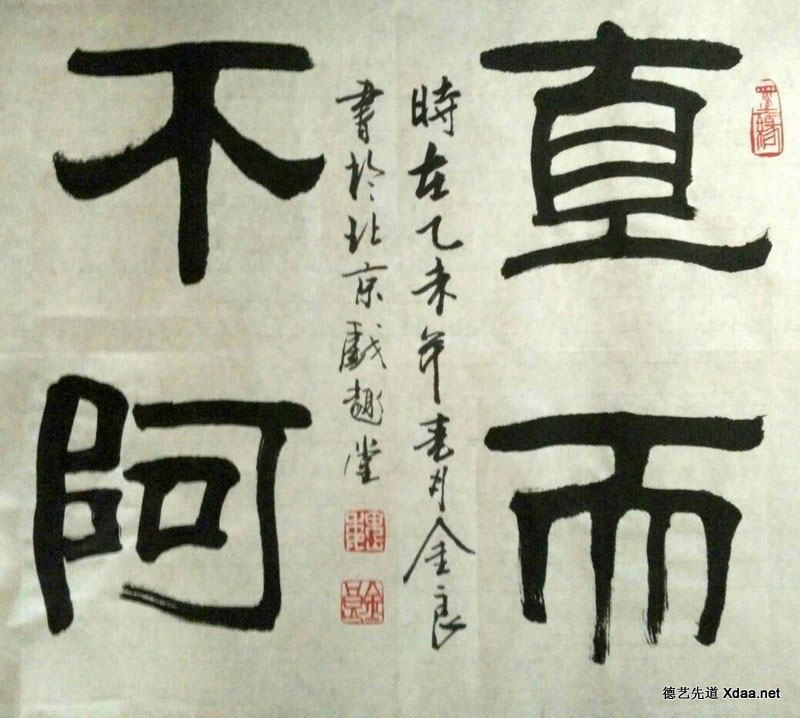 直而
不阿
時在乙未年春月金良
書於北京戲趣堂
德艺先道 Xdaa.net